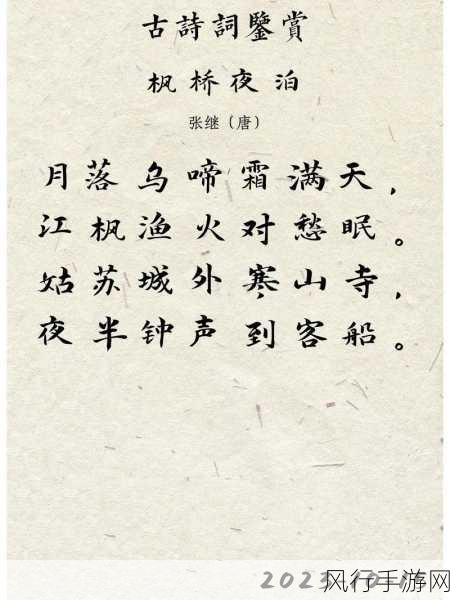 古詩詞鑒賞
枫桥夜泊
张继（唐）
月落乌啼霜满天，
江枫渔火对愁眠。
姑苏城外寒山寺，
夜半钟声到客船。
风行手游网